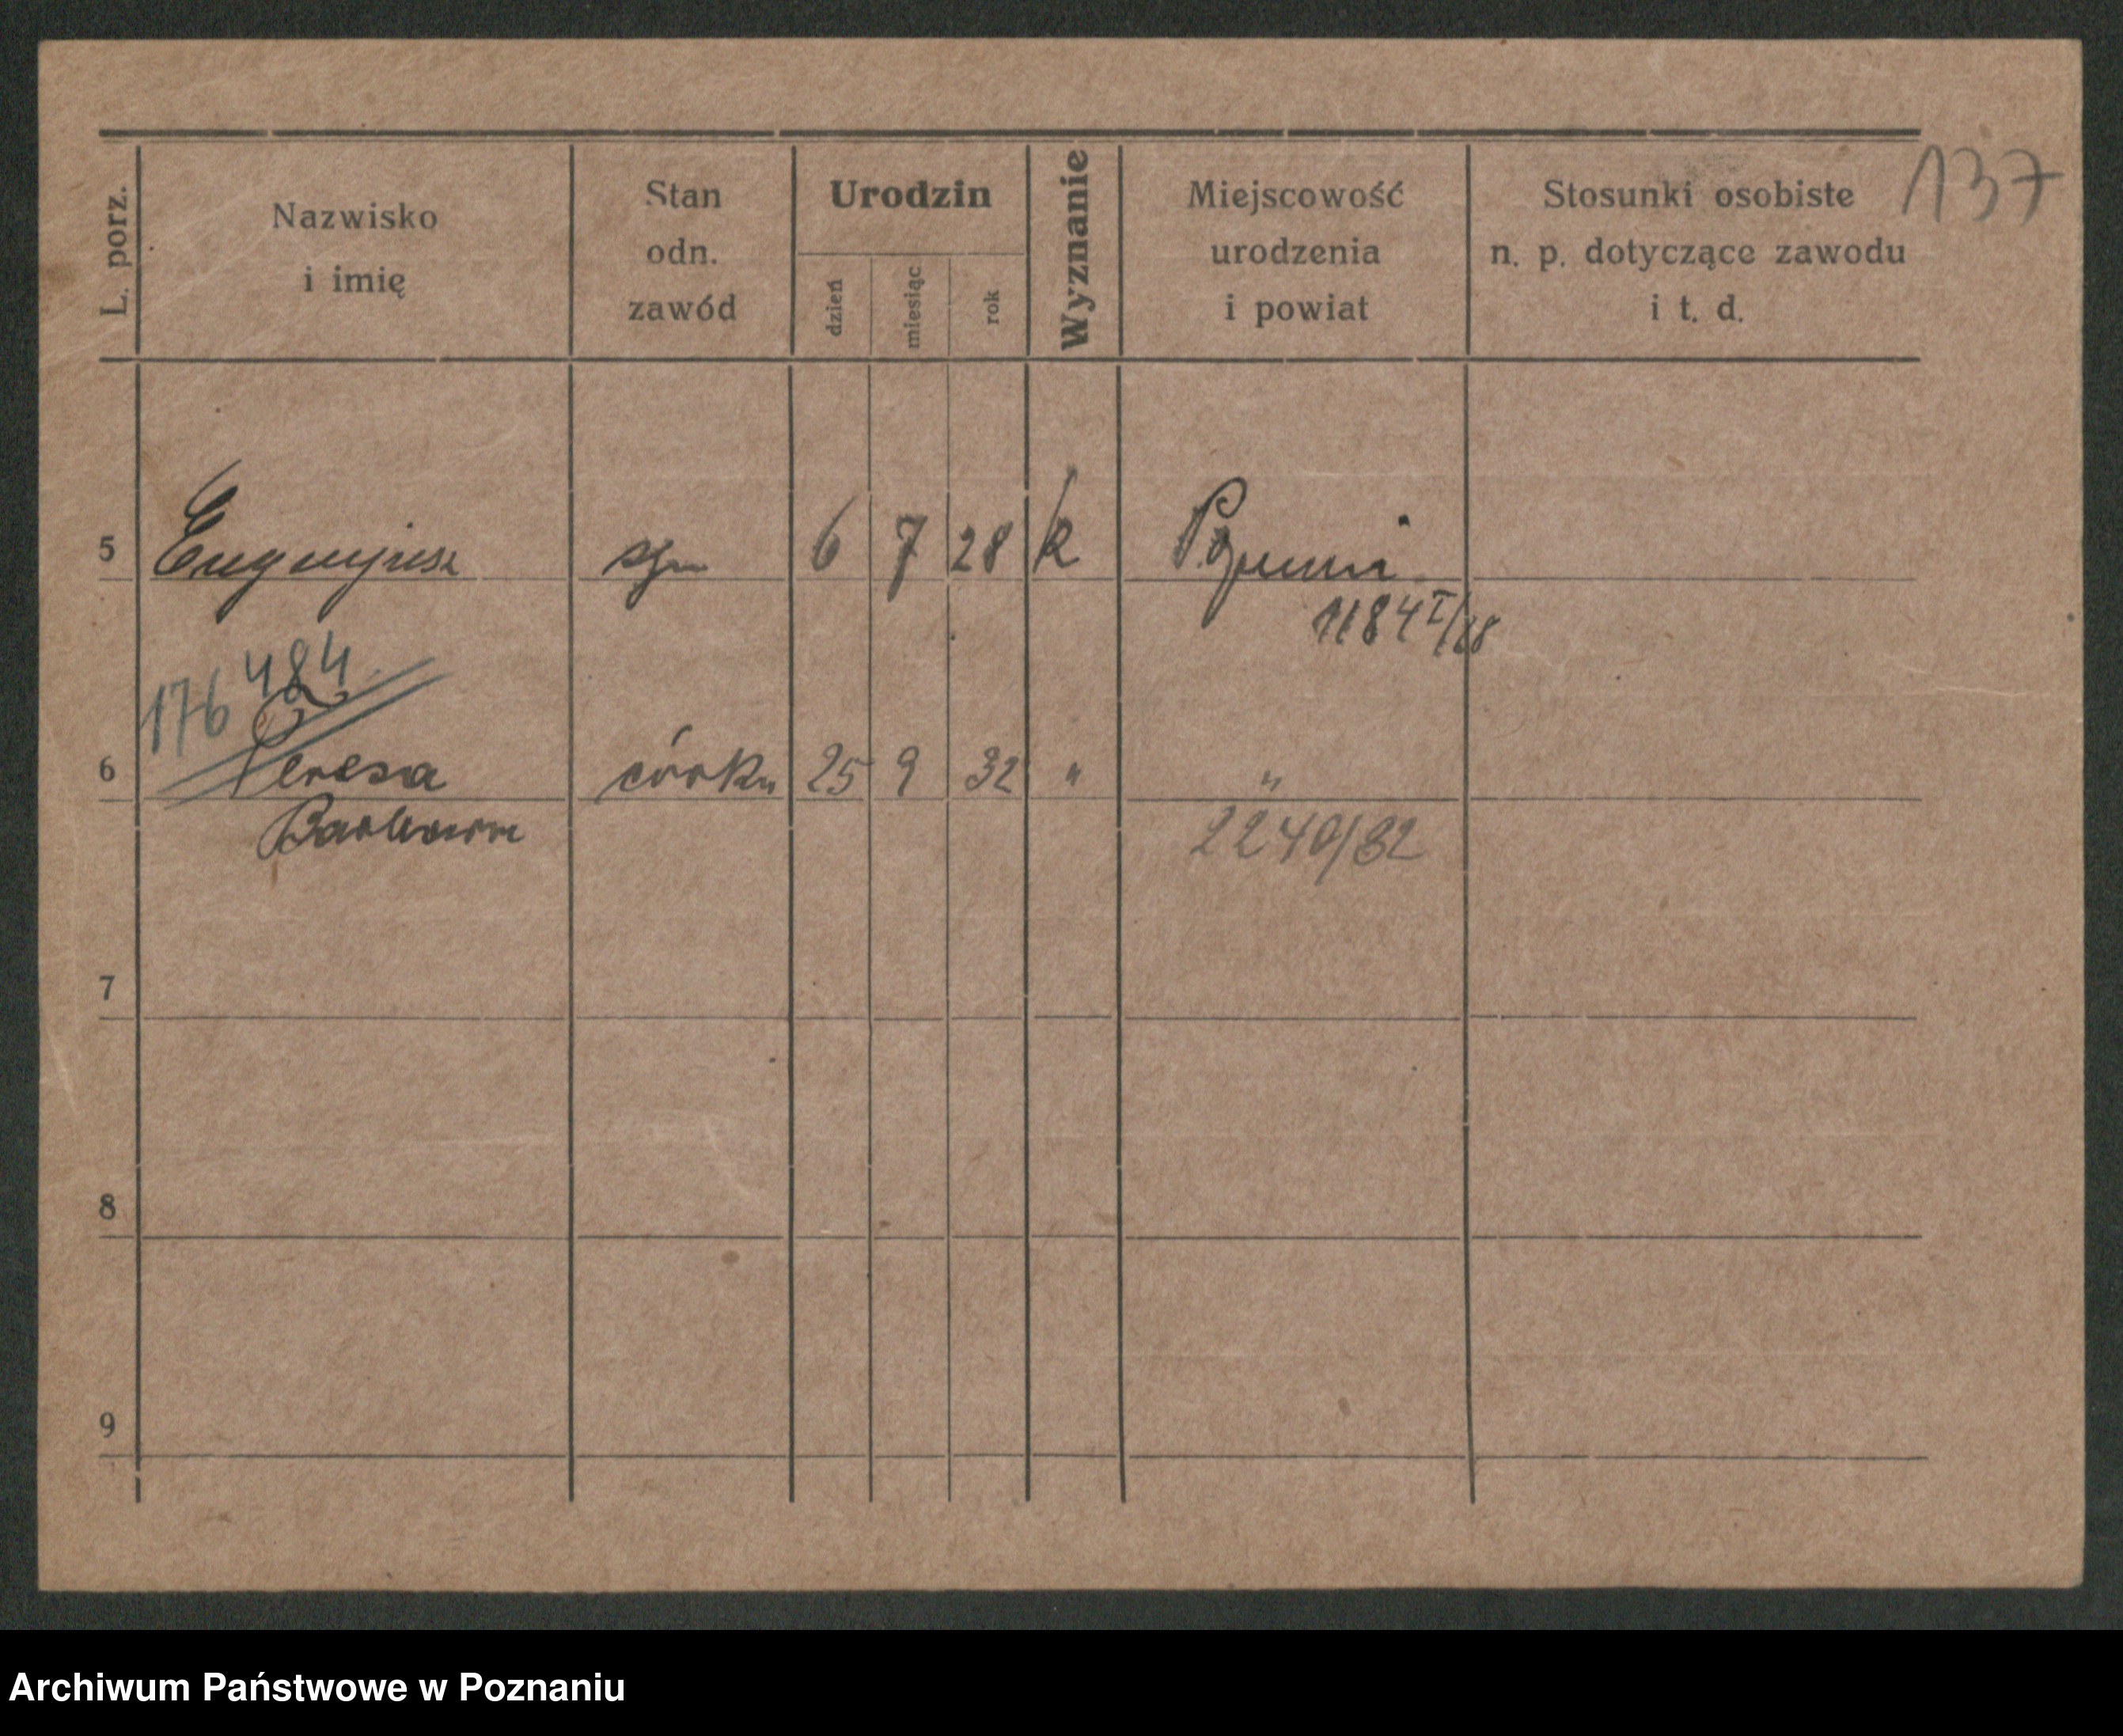 137
L. porz.
Nazwisko
i imię
Stan
odn.
zawód
Urodzin
dzień
miesiąc
rok
Wyznanie
Miejscowość
urodzenia
i powiat
Stosunki osobiste
n. p. dotyczące zawodu
i t. d.
5 Eugenjusz syn 6 7 28 k Poznań
1184 I/28
176 484
6 Teresa córka 25 9 32 " "
Barbara 2240/32
7
8
9
Archiwum Państwowe w Poznaniu